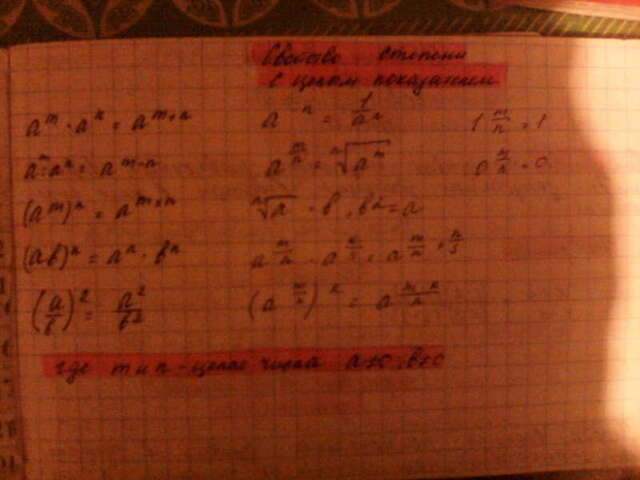 Свойство степени
с целым показателем
a^m · a^n = a^{m+n}
a^m : a^n = a^{m-n}
(a^m)^n = a^{m×n}
(ab)^n = a^n · b^n
(a/b)^2 = a^2/b^2
a^{-n} = 1/a^n
a^{m/n} = ⁿ√a^m
ⁿ√a = b, b^n = a
a^{m/n} · a^{k/s} = a^{m/n + k/s}
(a^{m/n})^k = a^{m·k/n}
1^{m/n} = 1
0^{m/n} = 0
где m и n - целые числа a≠0, b≠0